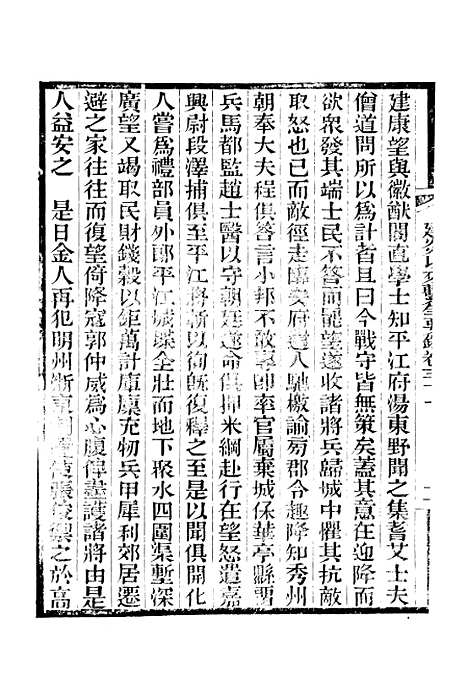 建康望與徽猷閣直學士知平江府湯東野聞之集耆艾士夫
僧道問所以為計者且曰今戰守皆無策矣蓋其意在迎降而
欲衆發其端士民不答而罷望遂收諸將兵歸城中懼其抗敵
取怒也而敵徑走臨安府遣人馳檄諭旁郡令趣降知秀州
朝奉大夫程俱答言小邦不即率官屬棄城保華亭縣留
兵馬都監趙士醫以守朝廷遂命俱押米綱赴行在望怒遣嘉
興尉段澤捕俱至平江將斬以徇旣復釋之至是以聞俱開化
人嘗為禮部員外郎平江城堞全壯而地下聚水四圍渠塹深
廣望又竭取民財錢穀以鉅萬計庫廩充物兵甲犀利郊居遷
避之家往往而復望倚降寇郭仲威為心腹俾盡護諸將由是
人益安之　是日金人再犯明州浙東制置使張俊禦之於高